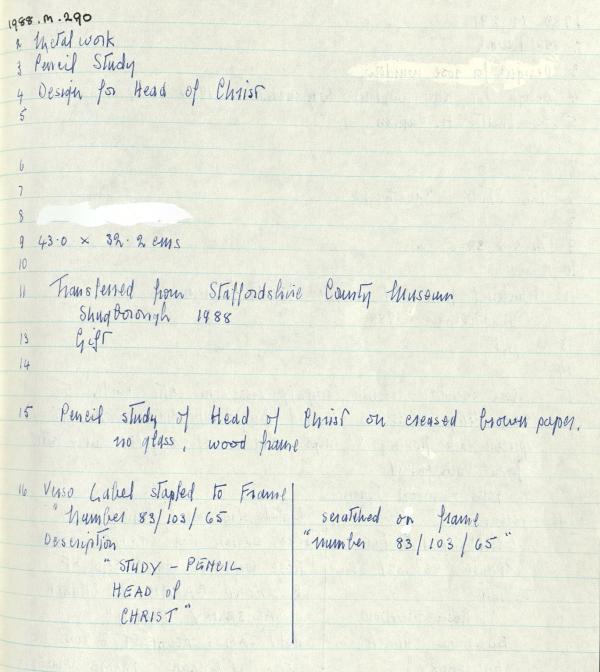 1988.M.290
2 Metalwork
3 Pencil Study
4 Design for Head of Christ
5
6
7
8
9 43.0 × 32.2 cms
10
11 Transferred from Staffordshire County Museum
Shugborough 1988
13 Gift
14
15 Pencil study of Head of Christ on creased brown paper.
no glass, wood frame
16 Verso Label stapled to Frame
"Number 83/103/65
Description
"STUDY - PENCIL
HEAD of
CHRIST"
scratched on frame
"number 83/103/65"